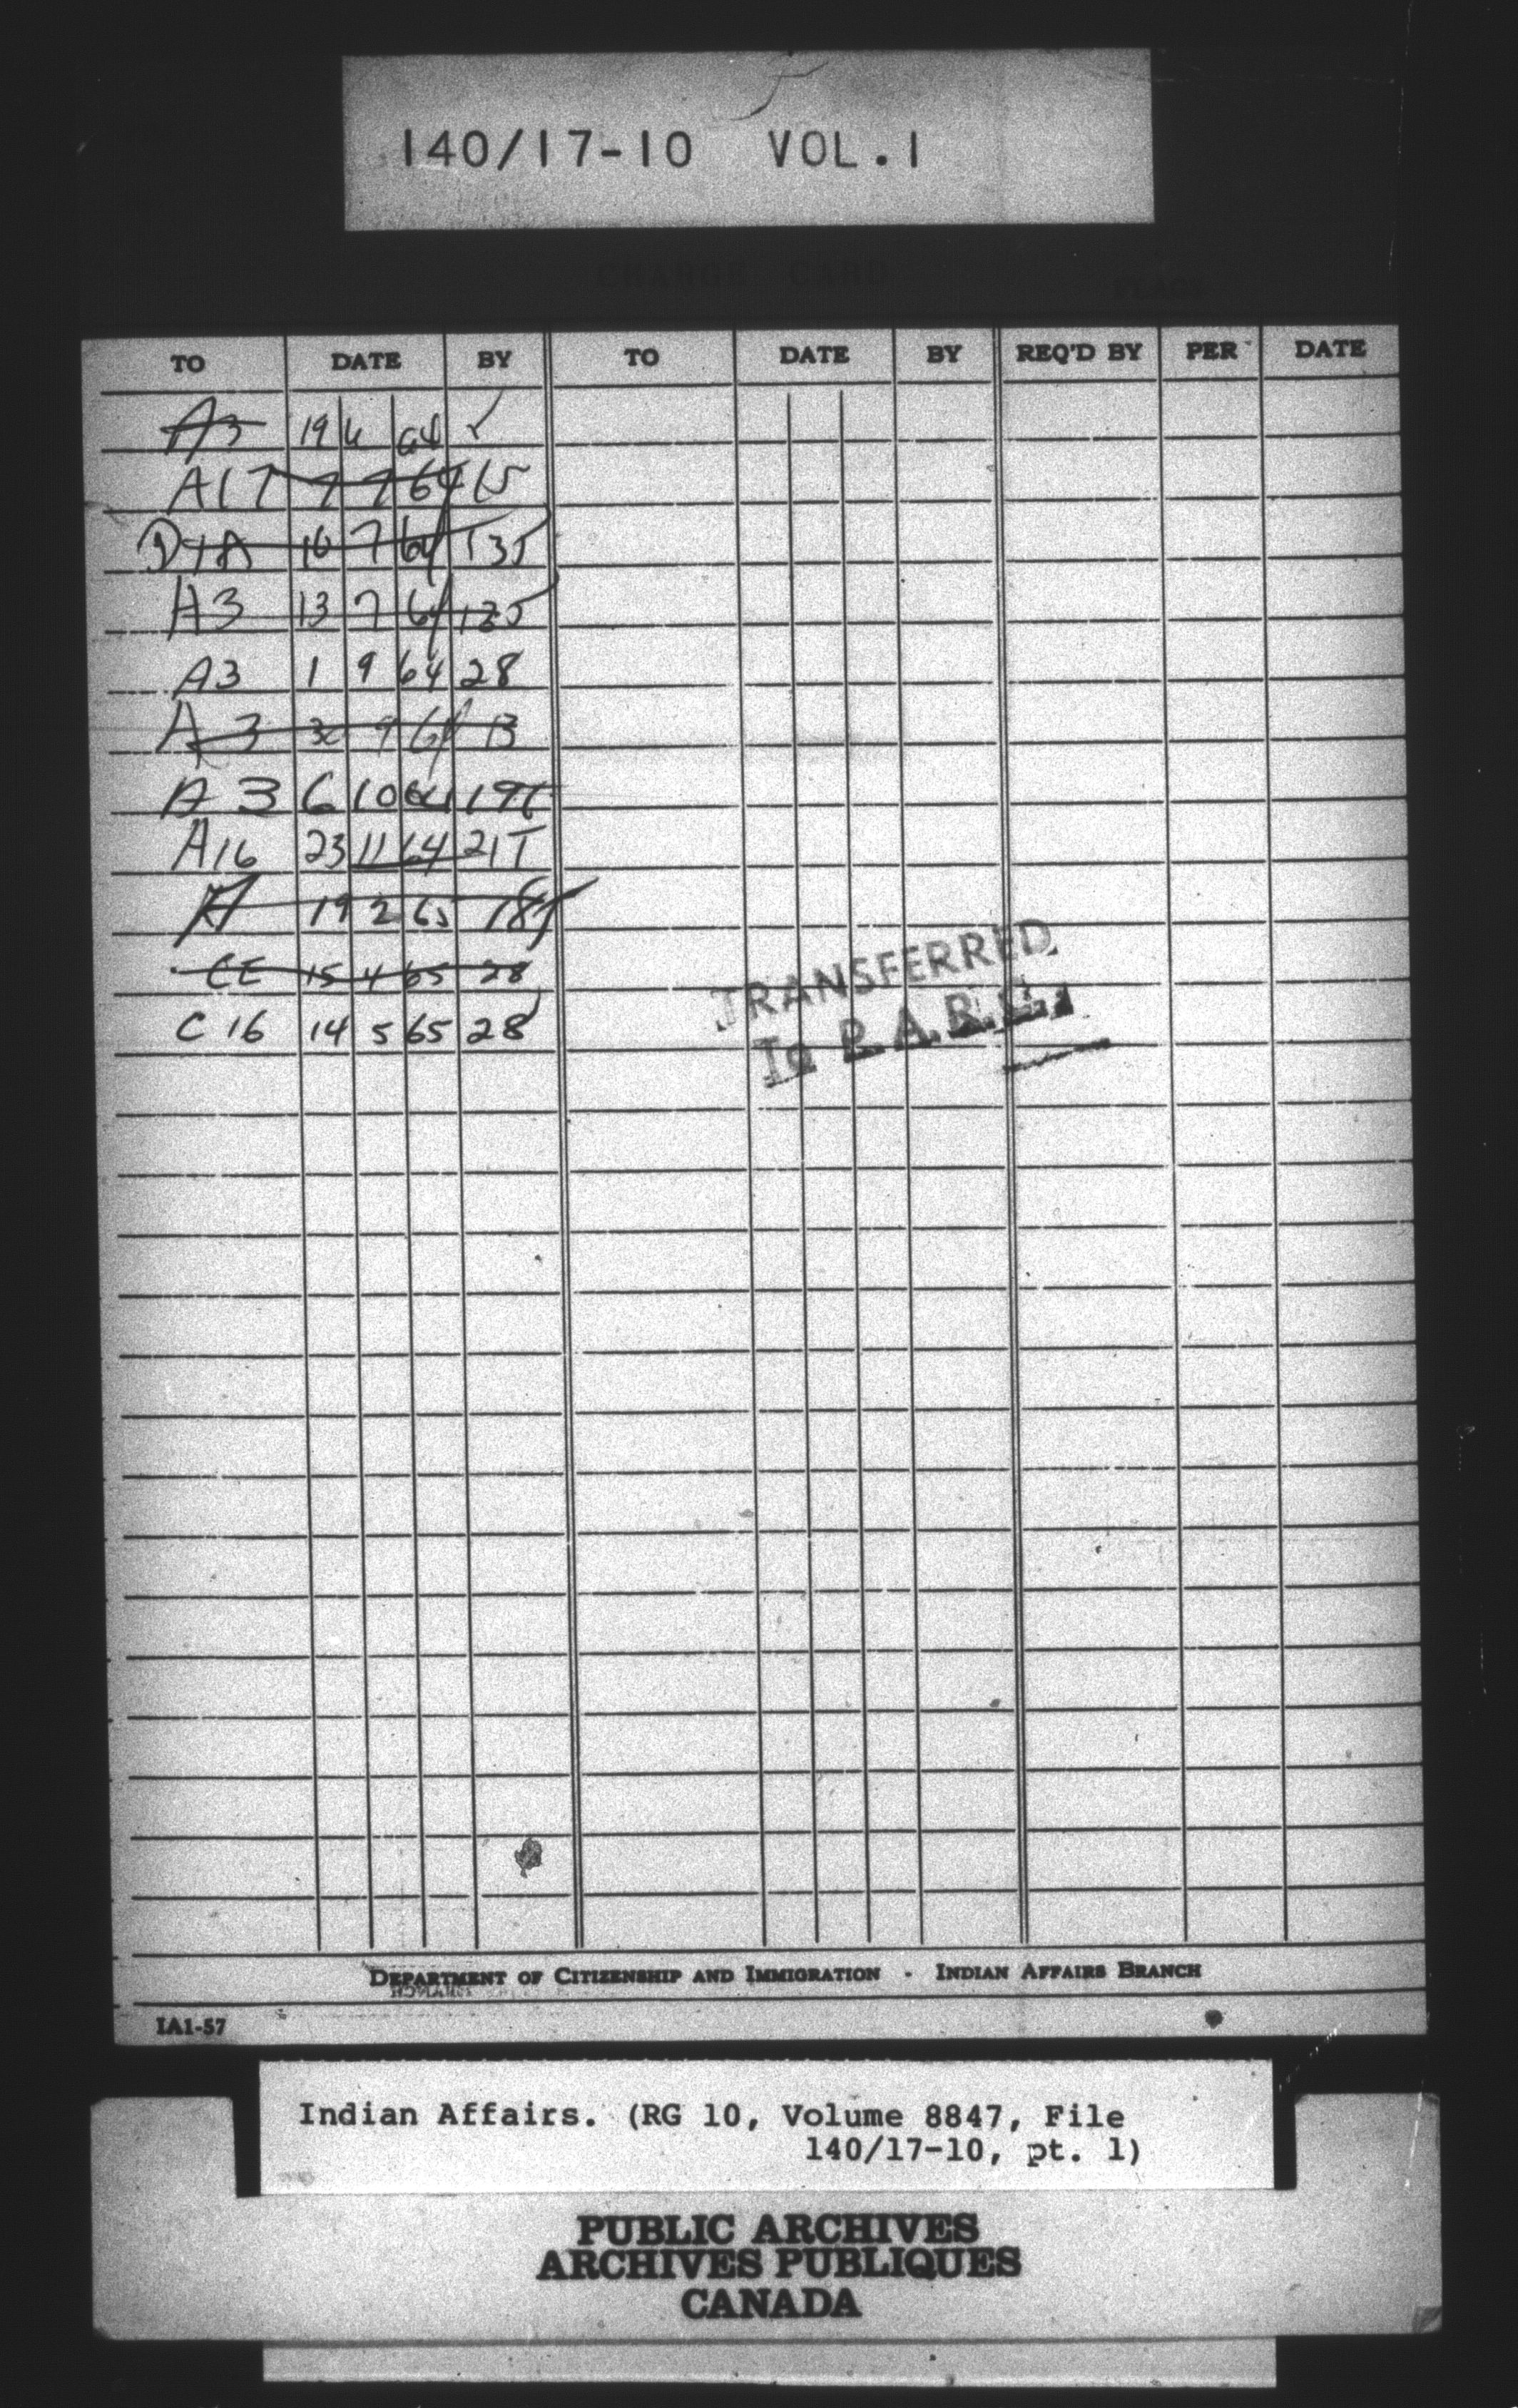 140/17-10 VOL. 1
CHARGE CARD
TO DATE BY TO DATE BY REQ'D BY PER DATE
A3 19 6 64 ✓
A17 7 7 64 15
10 7 64 13J
A3 13 7 64 13J
A3 1 9 64 28
A3 30 9 64 13
A3 6 10 64 19T
A16 23 11 64 21T
19 2 65 18J
CE 15 4 65 28
C16 14 5 65 28
TRANSFERRED
To P.A.R.C.
DEPARTMENT OF CITIZENSHIP AND IMMIGRATION - INDIAN AFFAIRS BRANCH
IA1-57
Indian Affairs. (RG 10, Volume 8847, File
140/17-10, pt. 1)
PUBLIC ARCHIVES
ARCHIVES PUBLIQUES
CANADA